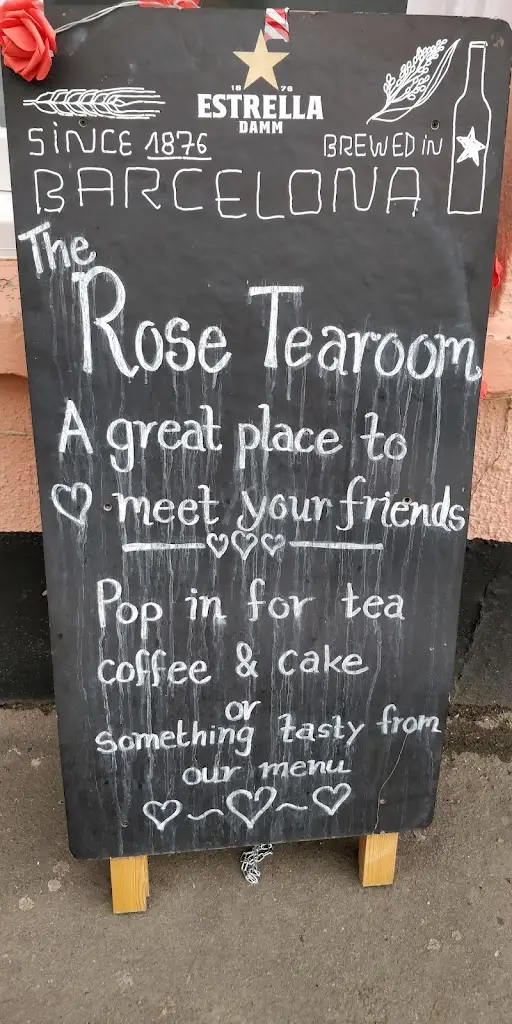 18 76
ESTRELLA
DAMM
SINCE 1876
BREWED IN
BARCELONA
The
Rose Tearoom
A great place to
meet your friends
Pop in for tea
coffee & cake
or
something tasty from
our menu